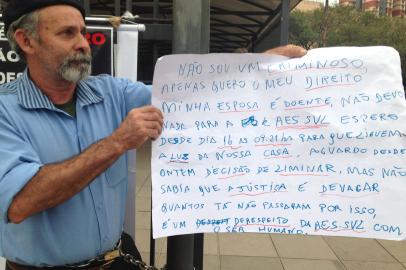 NÃO SOU UM CRIMINOSO,
APENAS QUERO O MEU DIREITO
MINHA ESPOSA É DOENTE, NÃO DEVO
NADA PARA A AES SUL ESPERO
DESDE DIA 16 AS 09:21 hs PARA QUE LIGUEM
A LUZ DA NOSSA CASA. AGUARDO DESDE
ONTEM DECISÃO DE LIMINAR, MAS NÃO
SABIA QUE A JUSTIÇA É DEVAGAR
QUANTOS TÃ NÃO PASSARAM POR ISSO,
É UM DERESPEITO DA AES.SUL COM
O SER HUMANO.
RO
ÃO
DE